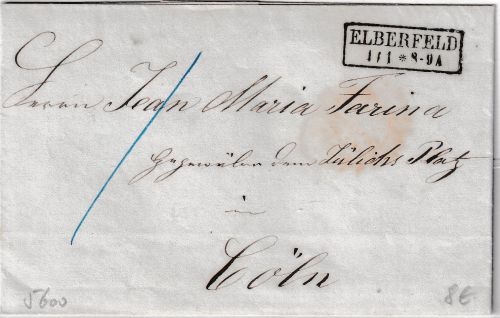 ELBERFELD
11 1 * 8-9A
Herrn Jean Maria Farina
Gegenüber dem Jülichs Platz
in
Cöln
5600
8€